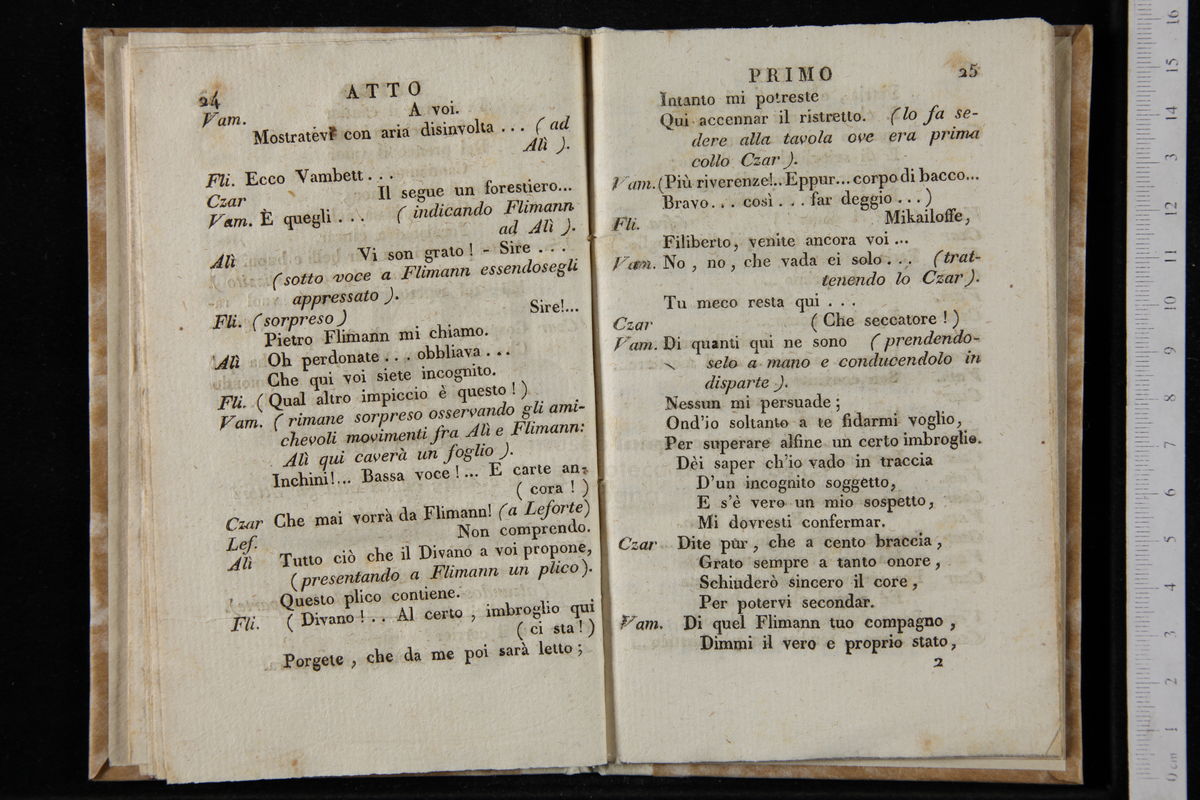 24 ATTO
Vam. A voi.
Mostratevi con aria disinvolta ... ( ad
Alì ).
Fli. Ecco Vambett ...
Czar Il segue un forestiero...
Vam. È quegli ... ( indicando Flimann
ad Alì ).
Alì Vi son grato ! - Sire ...
(sotto voce a Flimann essendosegli
appressato ).
Fli. (sorpreso) Sire!...
Pietro Flimann mi chiamo.
Alì Oh perdonate ... obbliava ...
Che qui voi siete incognito.
Fli. ( Qual altro impiccio è questo ! )
Vam. ( rimane sorpreso osservando gli ami-
chevoli movimenti fra Alì e Flimann:
Alì qui caverà un foglio ).
Inchini!... Bassa voce !... E carte an-
( cora ! )
Czar Che mai vorrà da Flimann! (a Leforte)
Lef. Non comprendo.
Alì Tutto ciò che il Divano a voi propone,
(presentando a Flimann un plico).
Questo plico contiene.
Fli. ( Divano ! .. Al certo , imbroglio qui
( ci sta ! )
Porgete , che da me poi sarà letto ;
PRIMO 25
Intanto mi potreste
Qui accennar il ristretto. (lo fa se-
dere alla tavola ove era prima
collo Czar ).
Vam. (Più riverenze!.. Eppur... corpo di bacco...
Bravo ... così ... far deggio ... )
Fli. Mikailoffe,
Filiberto, venite ancora voi ...
Vam. No , no , che vada ei solo ... (trat-
tenendo lo Czar).
Tu meco resta qui ...
Czar ( Che seccatore ! )
Vam. Di quanti qui ne sono (prendendo-
selo a mano e conducendolo in
disparte ).
Nessun mi persuade ;
Ond'io soltanto a te fidarmi voglio,
Per superare alfine un certo imbroglio.
Dèi saper ch'io vado in traccia
D'un incognito soggetto,
E s'è vero un mio sospetto,
Mi dovresti confermar.
Czar Dite pur , che a cento braccia ,
Grato sempre a tanto onore ,
Schiuderò sincero il core ,
Per potervi secondar.
Vam. Di quel Flimann tuo compagno ,
Dimmi il vero e proprio stato,
2
0 cm 1 2 3 4 5 6 7 8 9 10 11 12 13 14 15 16